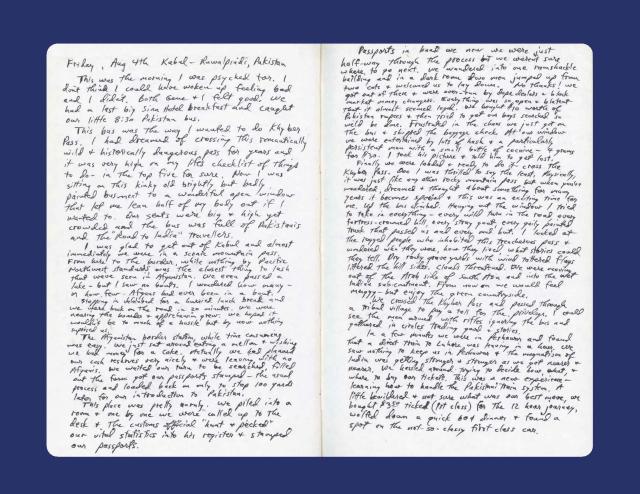 Friday, Aug 4th Kabul - Rawalpindi, Pakistan
This was the morning I was psyched for. I
don't think I could have woken up feeling bad
and I didn't. Both Gene & I felt good. We
had a last big Sina Hotel breakfast and caught
our little 8:30 Pakistan bus.
This bus was the way I wanted to do Khyber
Pass. I had dreamed of crossing this romantically
wild & historically dangerous pass for years and
it was very high on my life's checklist of things
to do - in the top five for sure. Now I was
sitting on this kinky old brightly but badly
painted bus next to a wonderful open window
that let me lean half of my body out if I
wanted to. Our seats were big & high yet
crowded and the bus was full of Pakistanis
and the "Road to India" travellers.
I was glad to get out of Kabul and almost
immediately we were in a scenic mountain pass.
From here to the border, while nothing by Pacific
Northwest standards was the closest thing to lush
that we've seen in Afganistan. We even passed a
lake - but I saw no boats. I wondered how many -
or how few - Afgans had ever been in a boat.
Stopping in Jalalabad for a hurried lunch break and
we were back on the road in 20 minutes. We were
nearing the border & apprehension grew; we hoped it
wouldn't be to much of a hassle but by now nothing
suprised us.
The Afganistan border station, while time consuming
was easy. We just sat around eating a melon & wishing
we had money for a coke. Actually we had planned
our cash reserves very nicely & were leaving with no
Afganis. We waited our turn to be searched, filled
out the form, got our passports stamped - the usual
process and loaded back in only to stop 100 yards
later for our introduction to Pakistan.
This place was pretty unruly. We piled into a
room & one by one we were called up to the
desk & the customs official "hunt & pecked"
our vital statistics into his register & stamped
our passports.
Passports in hand we now we were just
half-way through the process but we weren't sure
where to go next. We wandered into one ramshackle
building and in a dark room down men jumped up from
two cots & welcomed us to lay down. No thanks! We
got out of there & were over-run by dope dealers & black
market money changers. Everything was so open & blatent
that it almost seemed legal. We bought $10 worth of
Pakistan rupees & then tried to get our bags searched so
we'd be done. Frustrated in the chaos we just got on
the bus & skipped the baggage check. At our window
we were entertained by lots of hash & a particularly
persistent man with a small bottle of cocaine - 4 grams
for $20. I took his picture & told him to get lost.
Finally we were loaded & ready to do or cross the
Khyber Pass. Was I thrilled to say the least. Physically,
it was just like any other rocky mountain pass but when you've
wondered, dreamed & thought about something for many
years it becomes special & this was an exciting time for
me. Up the bus climbed. Hanging out the window I tried
to take in everything - every wild turn in the road every
fortress-crowned hill, every stray goat, every gaily painted
truck that passed us and every mud hut. I looked at
the rugged people who inhabited this treacherous pass &
wondered who they were, how they lived, what stories could
they tell. Dry rocky grave yards with wind tattered flags
littered the hill sides. Clouds threatened. We were moving
out of the Arab side of South Asia and into the west
Indian subcontinent. From now on we would feel
muggy - but enjoy the green countryside.
We crossed the Khyber Pass and passed through
a tribal village to pay a toll for the privilege. I could
see the men around with rifles ignoring the bus and
gathered in circles trading goods & stories.
In a few minutes we were in Peshawar and found
that a direct train to Lahore was leaving in a hour. We
saw nothing to keep us in Peshawar & the magnetism of
India was getting stronger & stronger as we got nearer &
nearer. We rushed around trying to decide how, what, &
where to buy our tickets. This was a new experience -
learning how to handle the Pakistan Train System. A
little bewildered & not sure what was our best move, we
bought $3.50 ticket (1st class) for the 12 hour journey,
wolfed down a quick 80¢ dinner & found a
spot on the not-so-classy first class car.